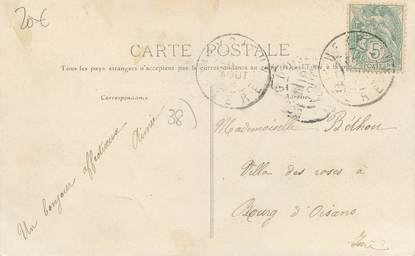 20€
CARTE POSTALE
Tous les pays étrangers n'acceptent pas la correspondance au
Correspondance
AOUT
ERE
5
38)
Un bonjour affectueux
Aimée
Mademoiselle Béthon
Villa des roses à
Bourg d'Oisans
Isère